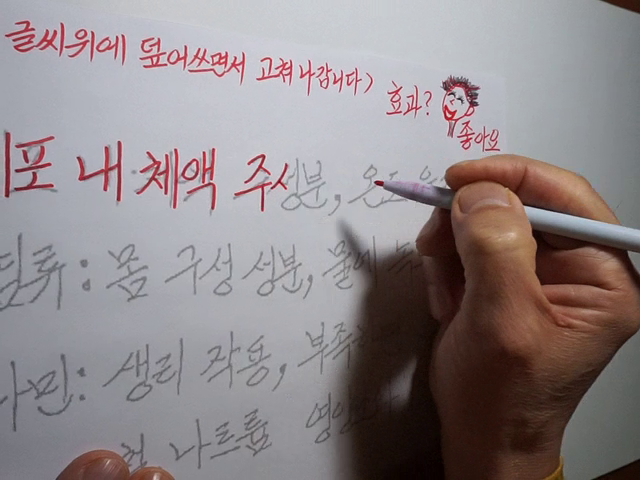 글씨위에 덮어쓰면서 고쳐나갑니다>
효과?
좋아요
포 내 체액 주성분, 온도
: 몸 구성 성분, 물에 녹
민: 생리 작용, 부족하
나트륨